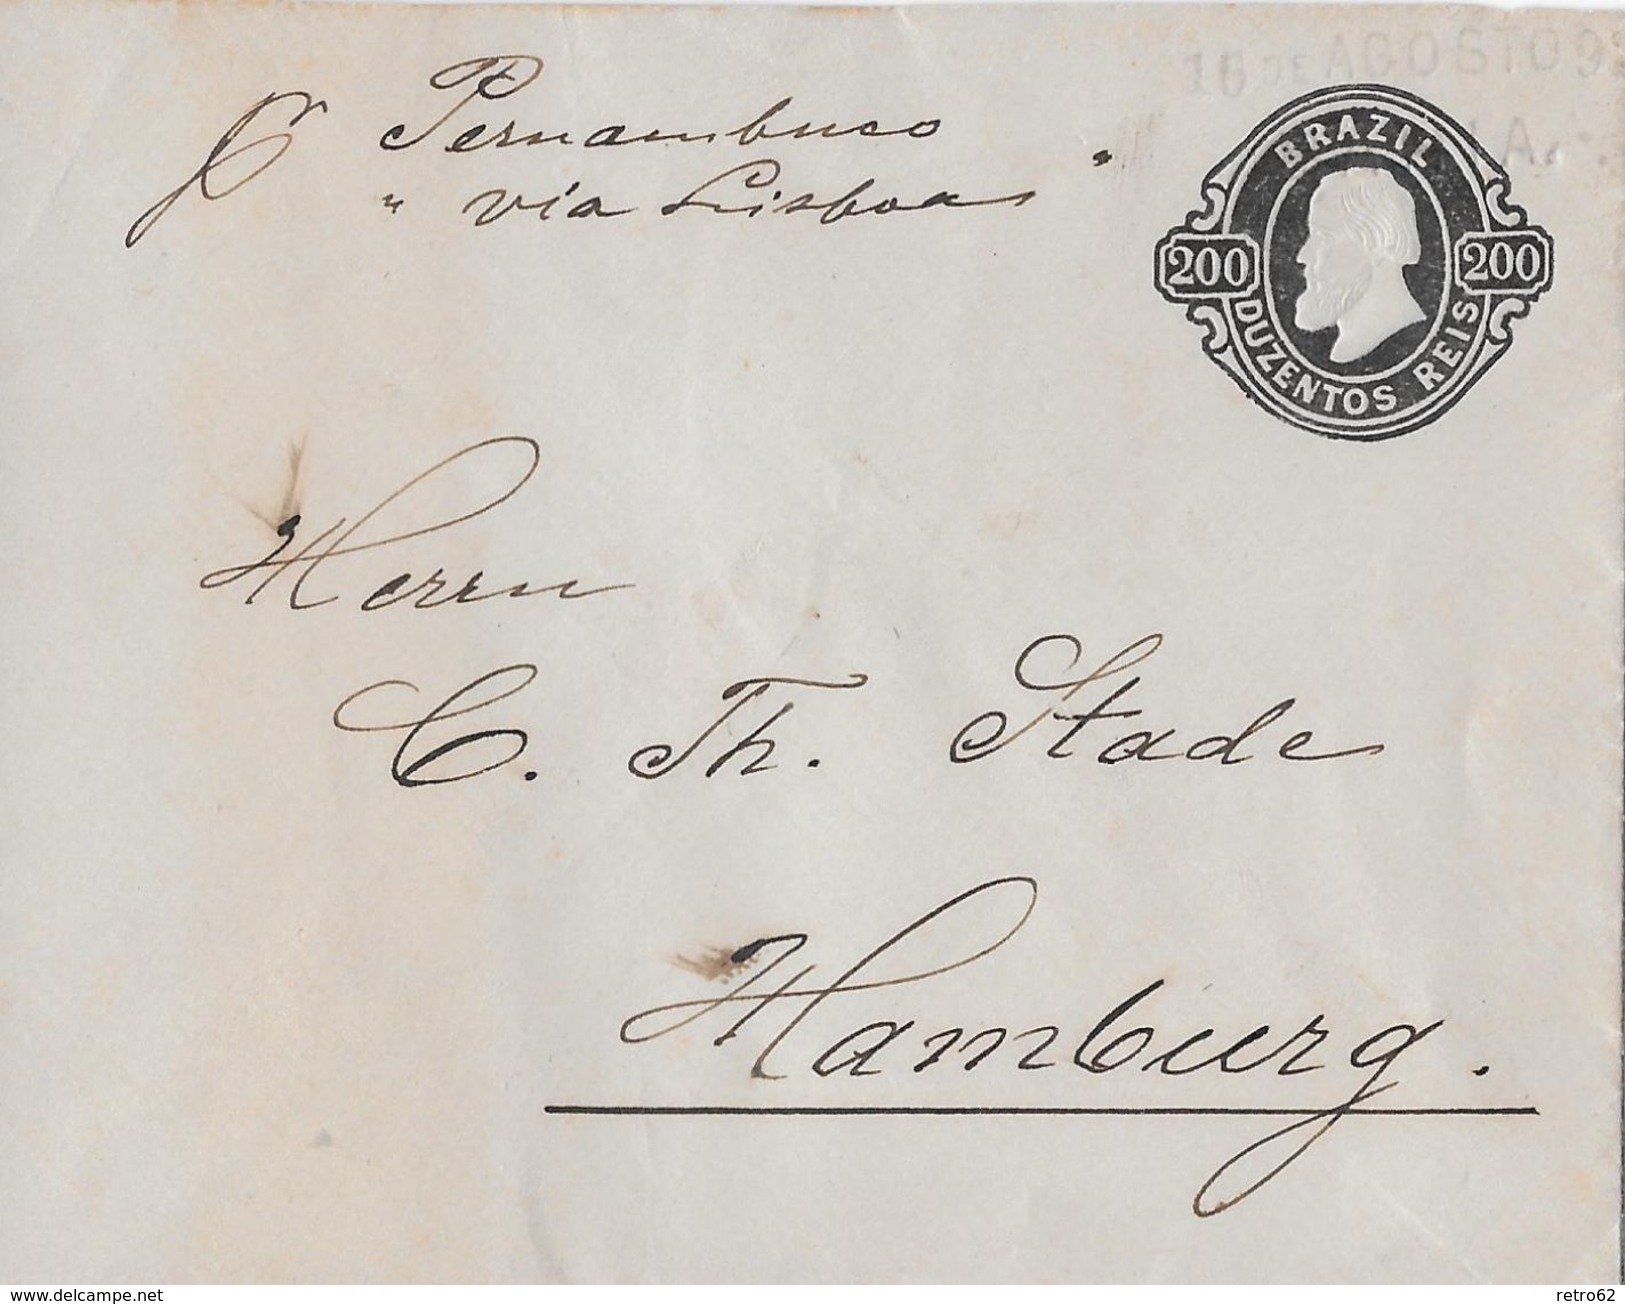 16 DE AGOSTO 9
pr Pernambuco
" via Lisboa "
BRAZIL
200 200
DUZENTOS REIS
Herrn
C. Th. Stade
Hamburg.
www.delcampe.net
retro62